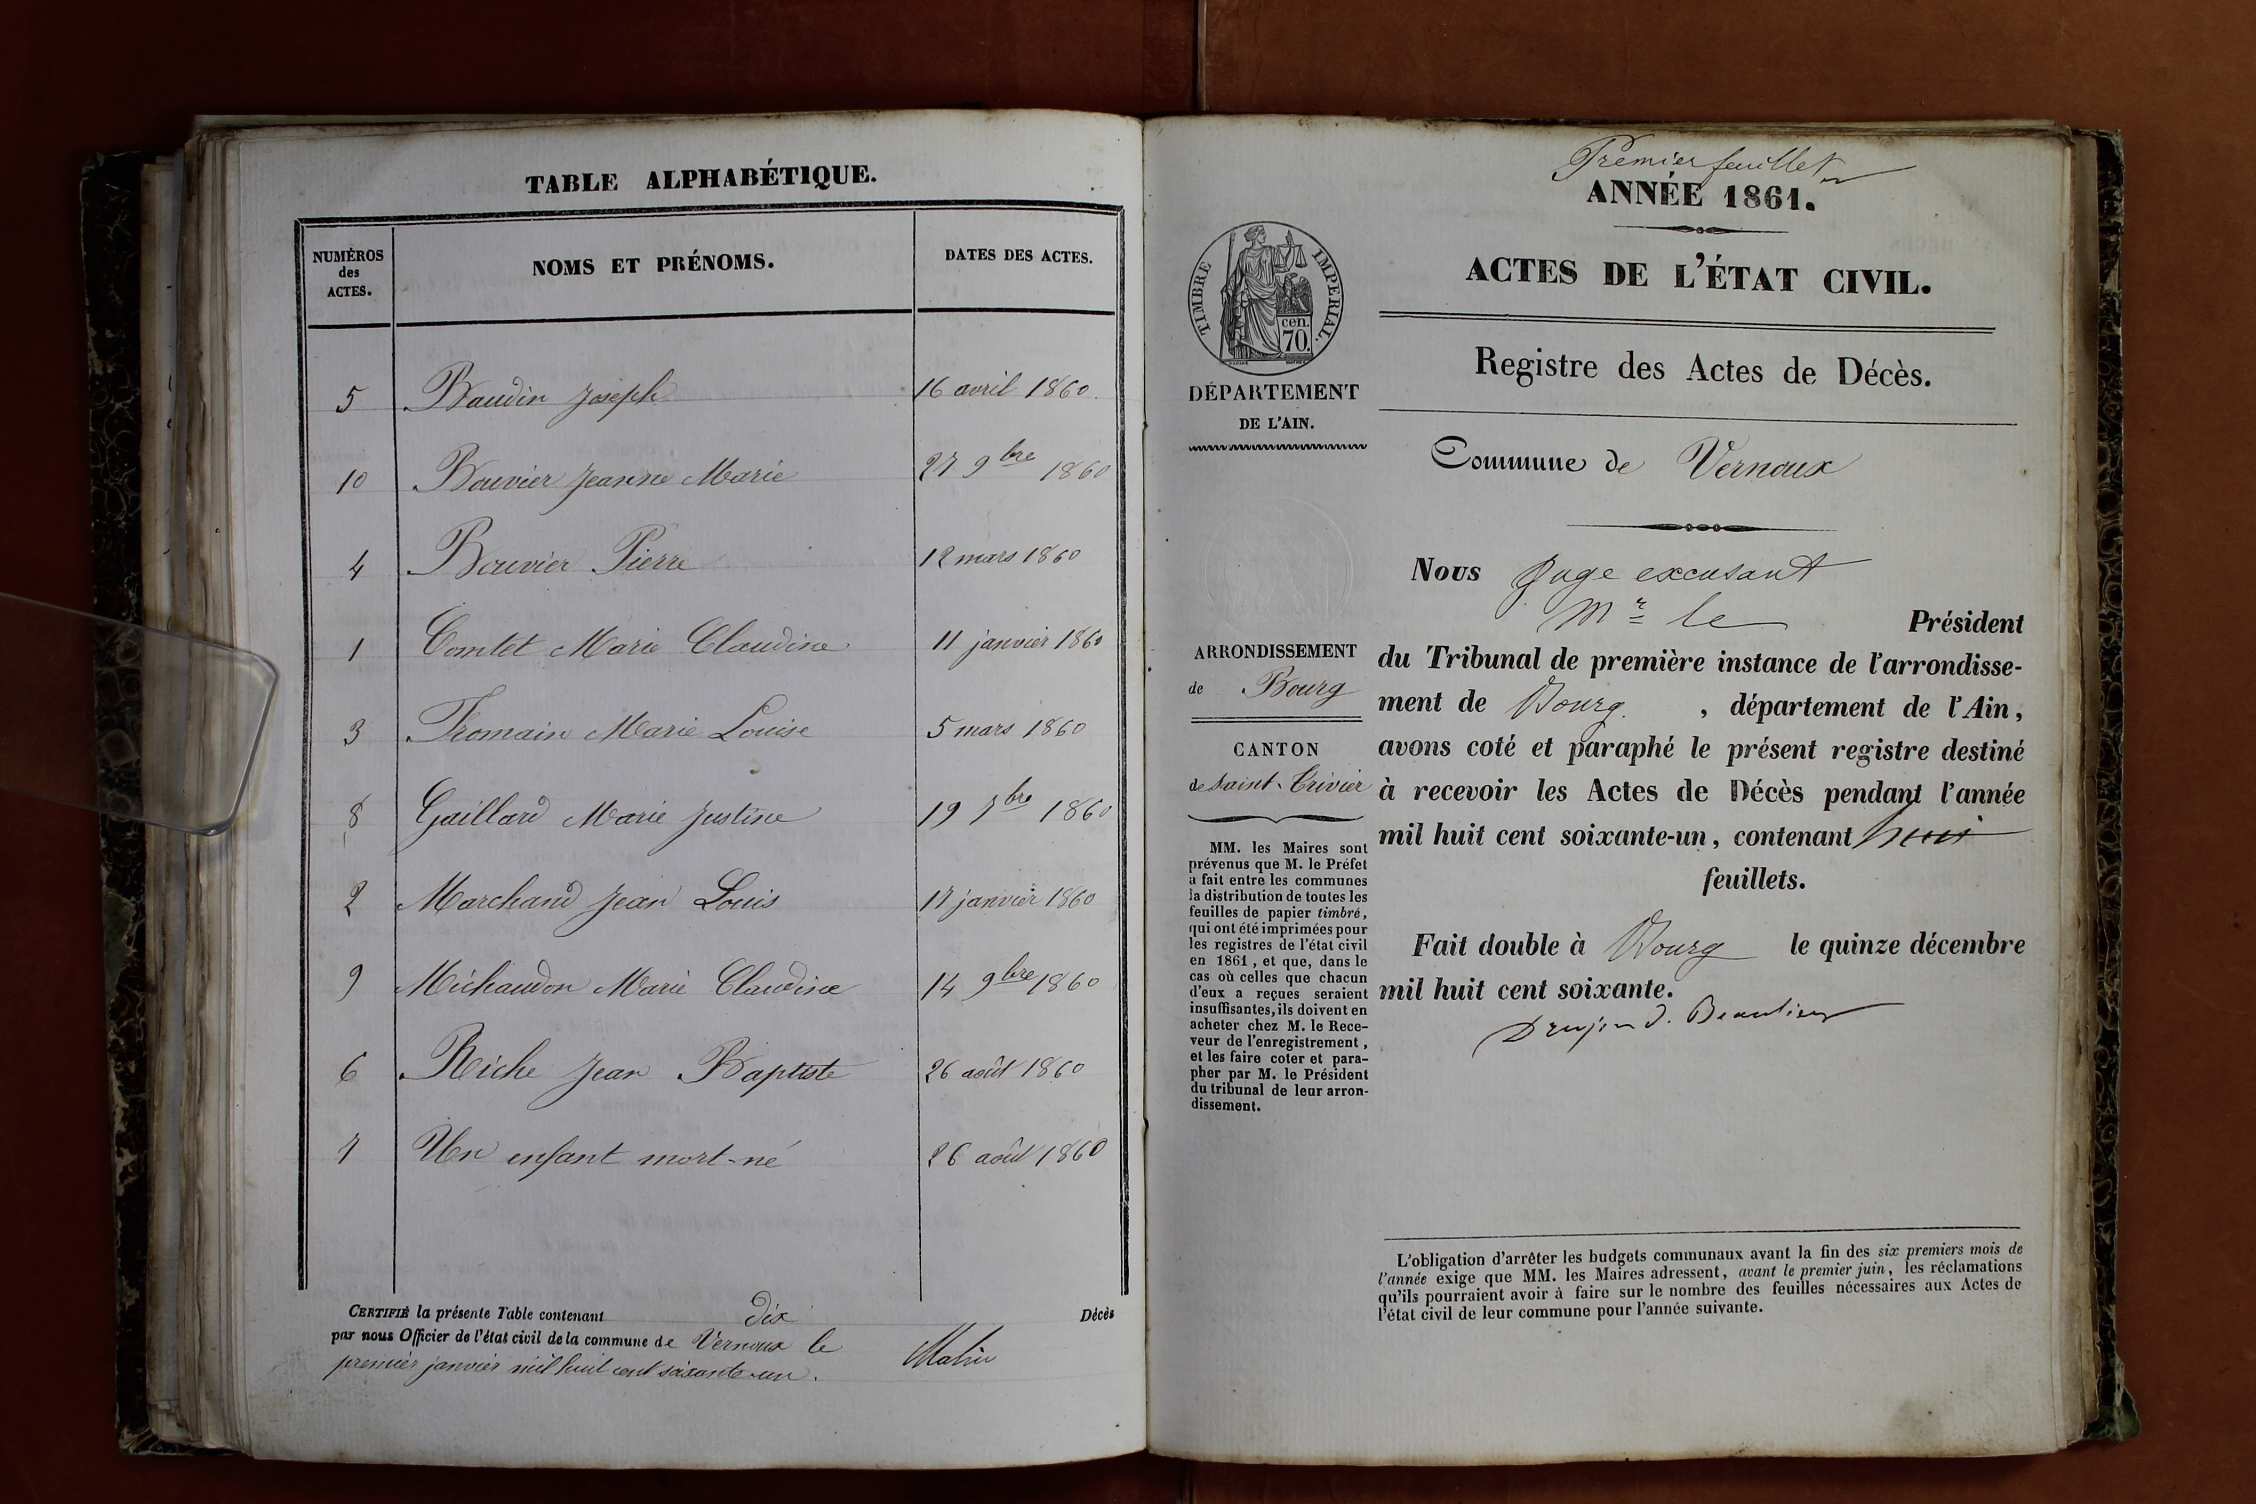 TABLE ALPHABÉTIQUE.
NUMÉROS des ACTES. NOMS ET PRÉNOMS. DATES DES ACTES.
5 Baudin Joseph 16 avril 1860.
10 Bouvier Jeanne Marie 27 9bre 1860
4 Bouvier Pierre 12 mars 1860
1 Comtet Marie Claudine 11 janvier 1860
3 Fromain Marie Louise 5 mars 1860
8 Gaillard Marie Justine 19 7bre 1860
2 Marchand Jean Louis 17 janvier 1860
9 Michaudon Marie Claudine 14 9bre 1860
6 Riche Jean Baptiste 26 août 1860
7 Un enfant mort-né 26 août 1860
CERTIFIÉ la présente Table contenant dix Décès
par nous Officier de l'état civil de la commune de Vernoux le
premier janvier mil huit cent soixante-un.
Premier feuillet
ANNÉE 1861.
ACTES DE L'ÉTAT CIVIL.
Registre des Actes de Décès.
Commune de Vernoux
TIMBRE IMPERIAL.
cen.
70.
DÉPARTEMENT
DE L'AIN.
ARRONDISSEMENT
de Bourg
CANTON
de Saint-Trivier
MM. les Maires sont
prévenus que M. le Préfet
a fait entre les communes
la distribution de toutes les
feuilles de papier timbré,
qui ont été imprimées pour
les registres de l'état civil
en 1861, et que, dans le
cas où celles que chacun
d'eux a reçues seraient
insuffisantes, ils doivent en
acheter chez M. le Rece-
veur de l'enregistrement,
et les faire coter et para-
pher par M. le Président
du tribunal de leur arron-
dissement.
Nous Juge excusant
Mr le Président
du Tribunal de première instance de l'arrondisse-
ment de Bourg, département de l'Ain,
avons coté et paraphé le présent registre destiné
à recevoir les Actes de Décès pendant l'année
mil huit cent soixante-un, contenant huit
feuillets.
Fait double à Bourg le quinze décembre
mil huit cent soixante.
L'obligation d'arrêter les budgets communaux avant la fin des six premiers mois de
l'année exige que MM. les Maires adressent, avant le premier juin, les réclamations
qu'ils pourraient avoir à faire sur le nombre des feuilles nécessaires aux Actes de
l'état civil de leur commune pour l'année suivante.